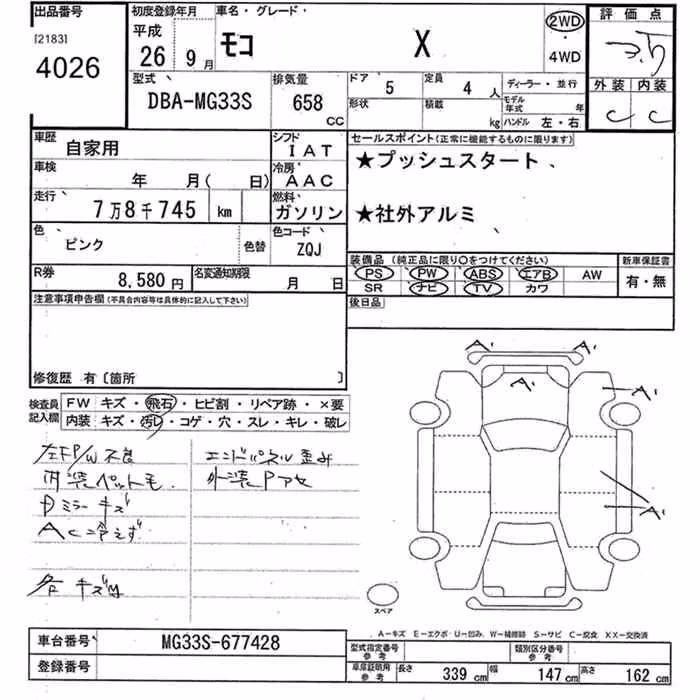 出品番号
[2183]
4026
初度登録年月
平成
26 9月
車名・グレード
モコ X
2WD
・
4WD
評価点
3.5
外装 内装
C C
型式
DBA-MG33S
排気量
658
CC
ドア 5
定員 4 人
形状
積載 kg
ディーラー・並行
モデル年式 年
ハンドル 左・右
車歴
自家用
シフト
IAT
車検
年 月( 日)
冷房
AAC
走行
7万8千745 km
燃料
ガソリン
色
ピンク
色替
色コード
ZQJ
R券
8,580円
名変通知期限
月 日
セールスポイント(正常に機能するものに限ります)
★プッシュスタート
★社外アルミ
装備品(純正品に限り○をつけてください)
PS PW ABS エアB AW
SR ナビ TV カワ
新車保証書
有・無
後日品
注意事項申告欄(不具合内容等は具体的に記入して下さい)
修復歴 有〔箇所 〕
検査員記入欄
FW キズ・飛石・ヒビ割・リペア跡・×要
内装 キズ・汚レ・コゲ・穴・スレ・キレ・破レ
左FP/W不良
内装ペット毛
Dミラーキズ
AC冷えず
各キズ凹
エンドパネル歪み
外装Pアセ
A' A'
A'
A'
A'
スペア
A－キズ E－エクボ・U－凹み、W－補修跡 S－サビ C－腐食 XX－交換済
車台番号
MG33S-677428
登録番号
型式指定番号
参考
類別区分番号
参考
車庫証明用
参考
長さ 339 cm
幅 147 cm
高さ 162 cm